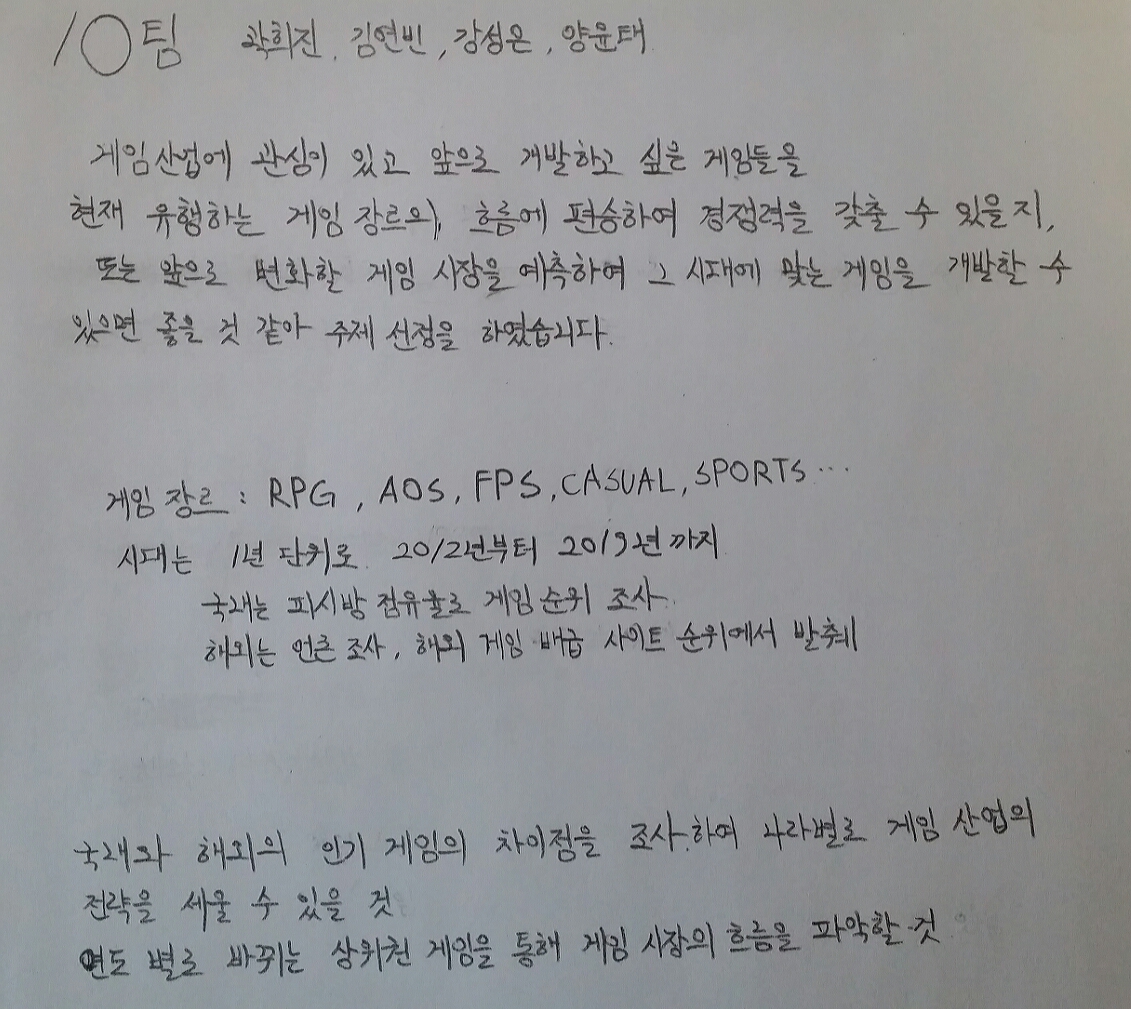 10팀 곽희진, 김연빈, 강성은, 양윤태
게임산업에 관심이 있고 앞으로 개발하고 싶은 게임들을
현재 유행하는 게임 장르의, 흐름에 편승하여 경쟁력을 갖출 수 있을지,
또는 앞으로 변화할 게임 시장을 예측하여 그 시대에 맞는 게임을 개발할 수
있으면 좋을 것 같아 주제 선정을 하였습니다.
게임 장르 : RPG, AOS, FPS, CASUAL, SPORTS ...
시대는 1년 단위로 2012년부터 2019년 까지
국내는 피시방 점유율로 게임 순위 조사
해외는 언론 조사, 해외 게임 배급 사이트 순위에서 발췌
국내와 해외의 인기 게임의 차이점을 조사하여 나라별로 게임 산업의
전략을 세울 수 있을 것
연도 별로 바뀌는 상위권 게임을 통해 게임 시장의 흐름을 파악할 것